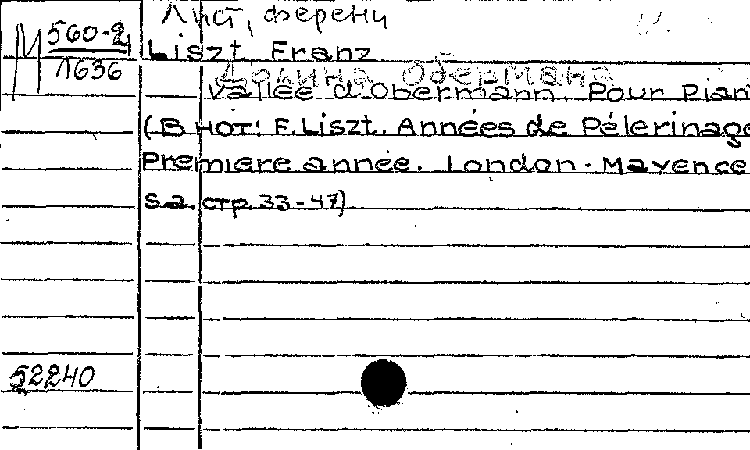 Лист, Ференц
М 560-2
Л636
Liszt Franz
Долина Обермана
Vallée d'Obermann. Pour Pian
(В нот: F. Liszt. Années de Pélerinage
Premiere année. London - Mayence
s.a. стр. 33-47)
52240